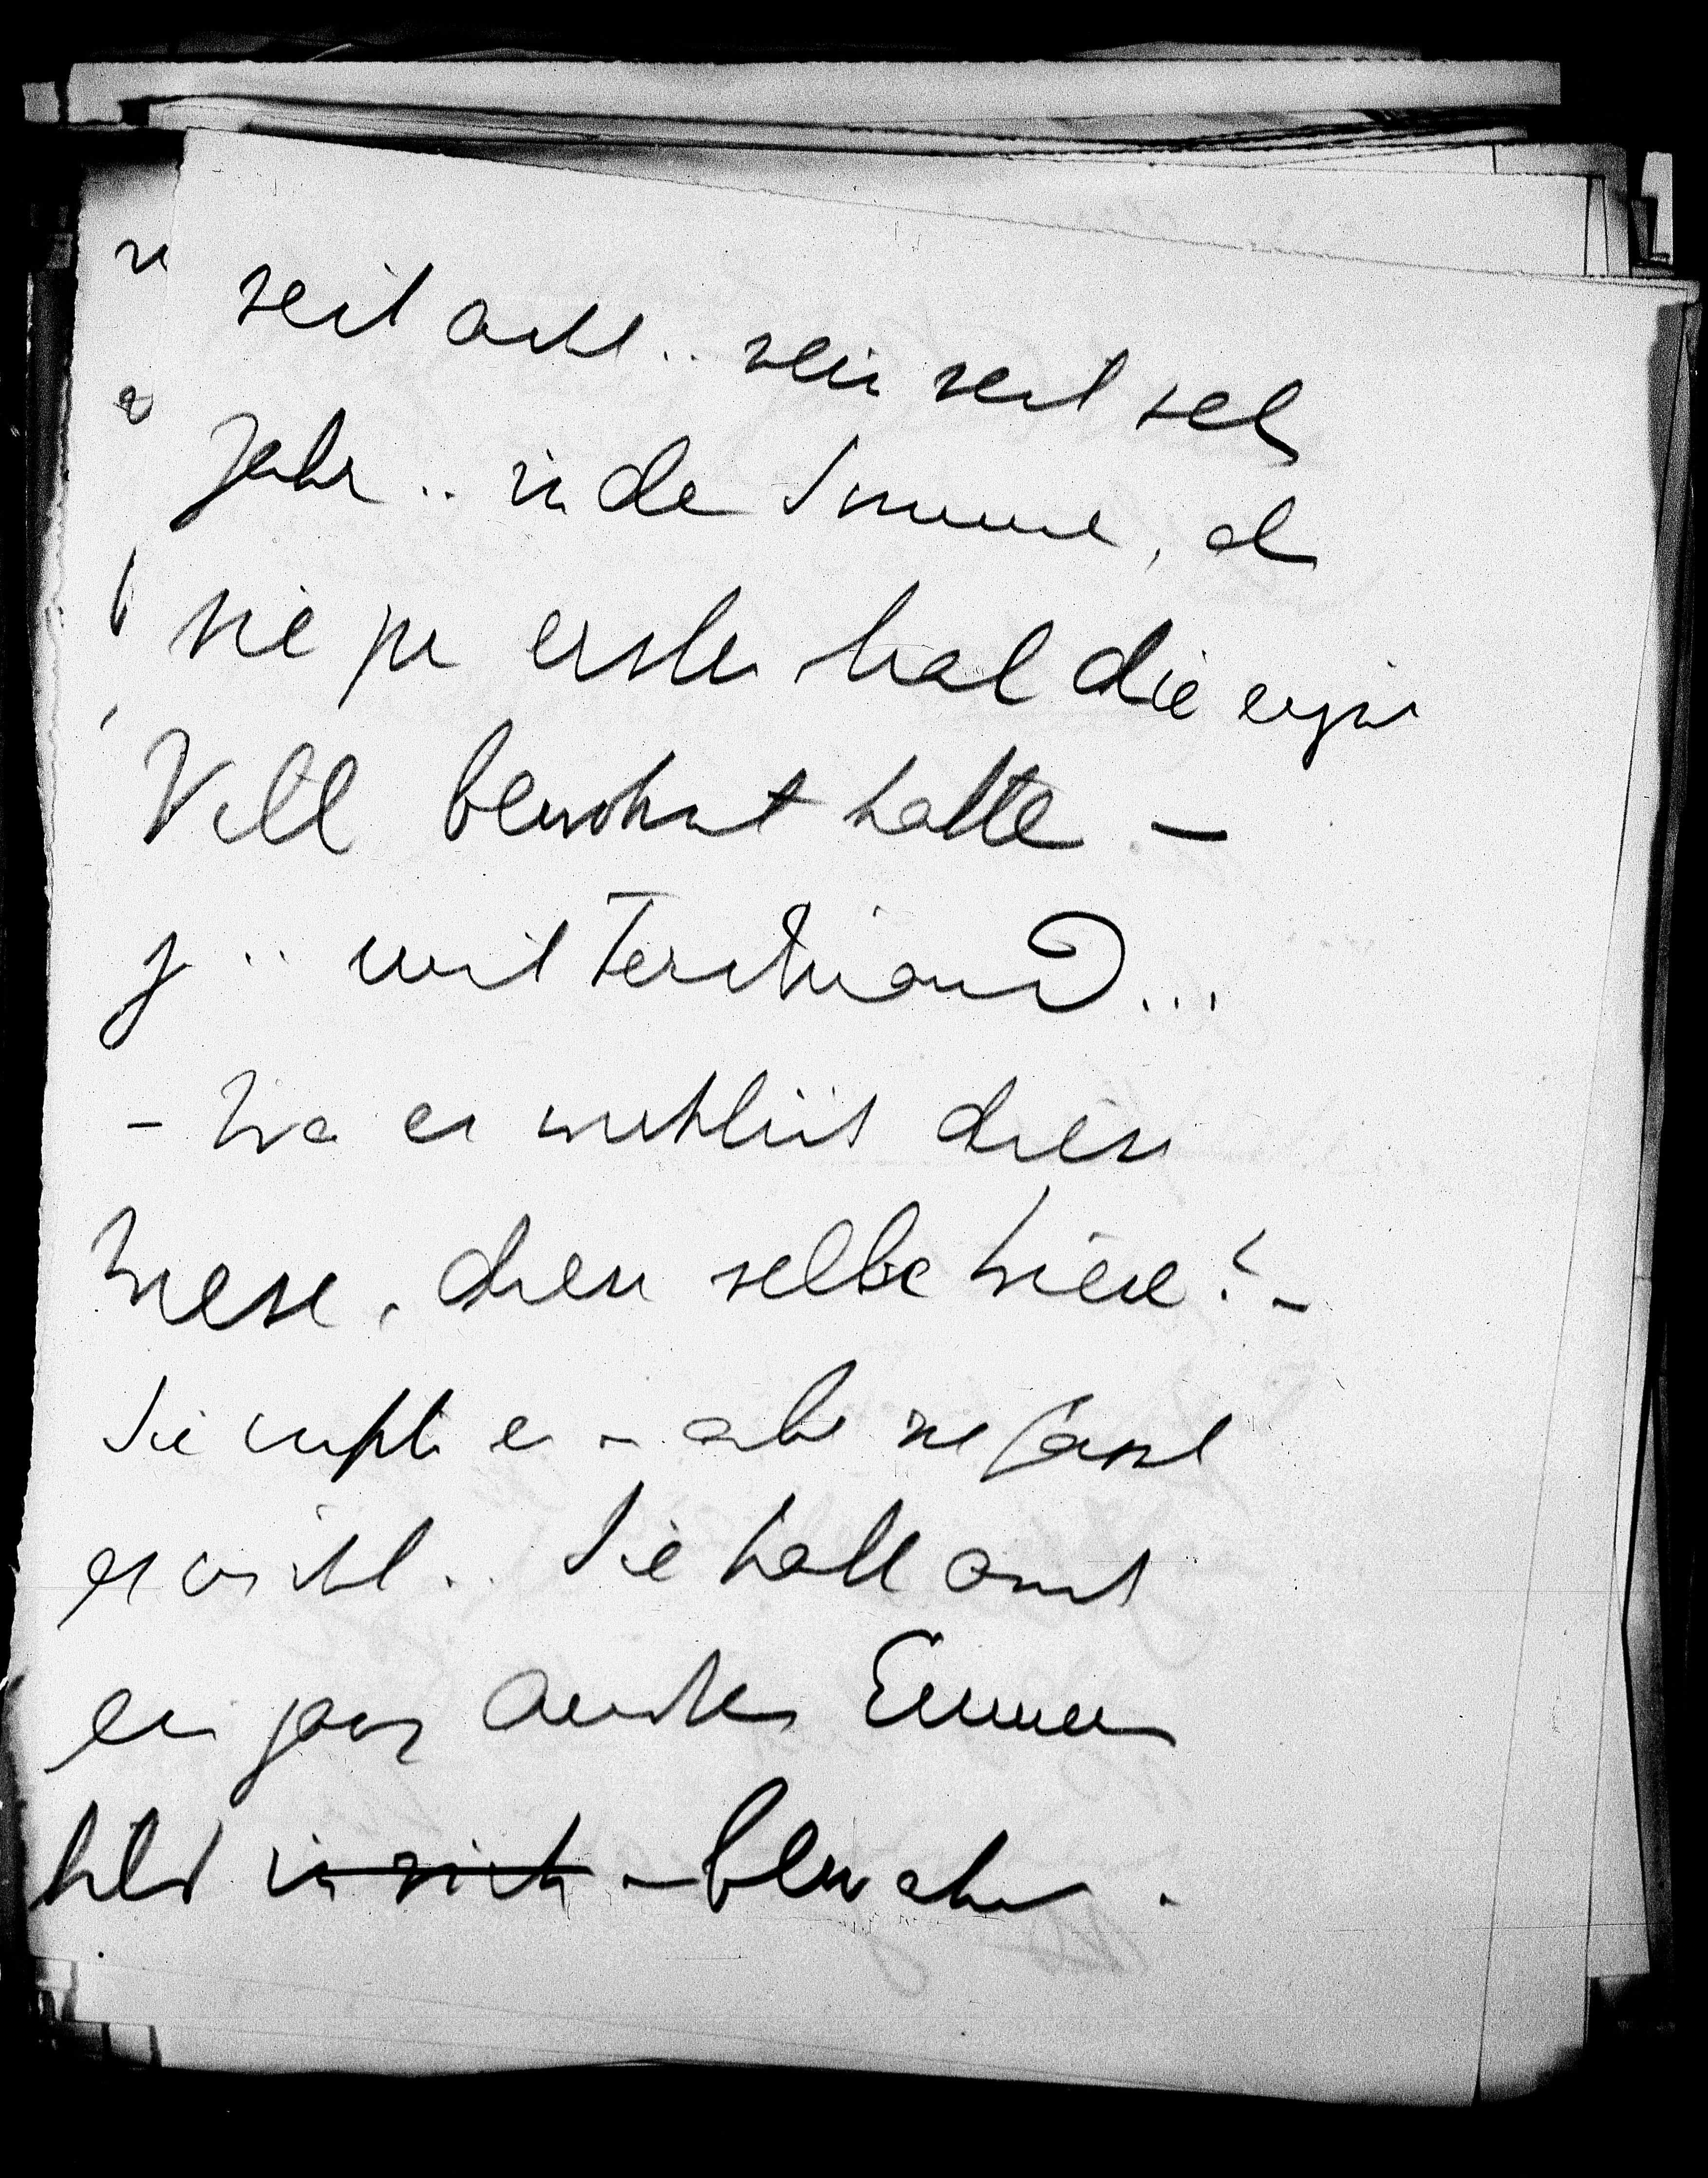 seit acht .. nein seit sechs
Jahren .. in dem Sommer, als
sie zum ersten Mal die eigene
Villa bewohnt hatte –
ja .. mit Ferdinand ...
– War es wirklich diese
Wiese, diese selbe Wiese? –
Sie wußte es – aber sie fand
es nicht .. Sie hatte auch
ein ganz anderes Erinnerungs
bild in sich – bewahrt .